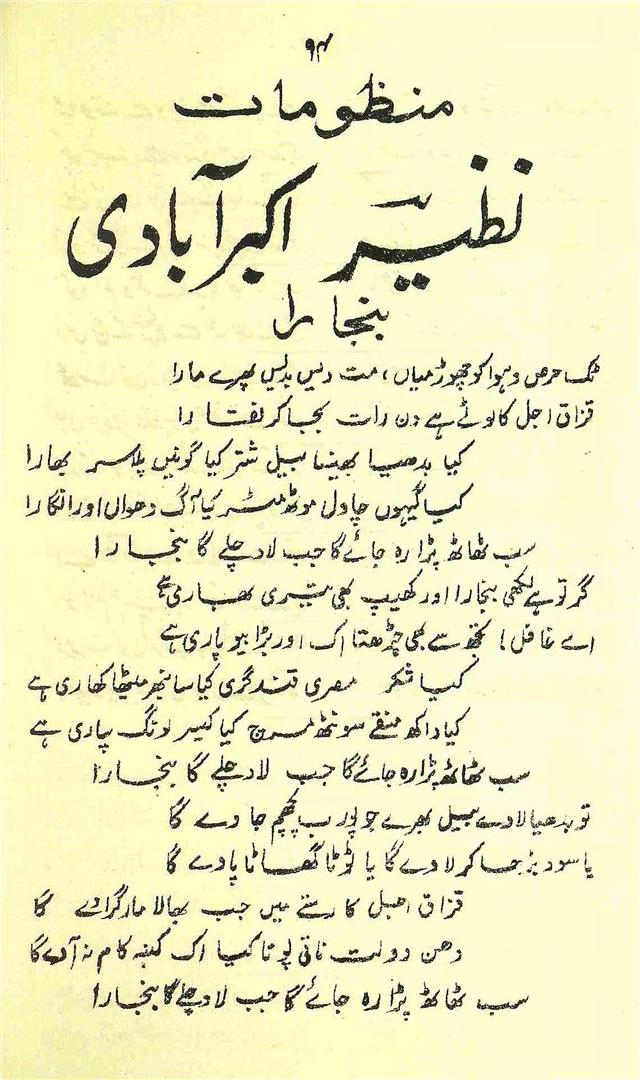 ۹۴
منظومات
نظیر اکبر آبادی
بنجارا
ٹک حرص و ہوا کو چھوڑ میاں، مت دیس بدلیس پھرے مارا
قزاق اجل کا لوٹے ہے دن رات بجا کر نقارا
کیا بدھیا بھینسا بیل شتر کیا گونیں پلا سر بھارا
کیا گیہوں چاول موٹھ مٹر کیا آگ دھواں اور انگارا
سب ٹھاٹھ پڑا رہ جائے گا جب لاد چلے گا بنجارا
گر تو ہے لکھی بنجارا اور کھیپ بھی تیری بھاری ہے
اے غافل! تجھ سے بھی چڑھتا اک اور بڑا بیوپاری ہے
کیا شکر مصری قند گری کیا سانبھر میٹھا کھاری ہے
کیا داکھ منقے سونٹھ مرچ کیا کیسر لونگ سپاری ہے
سب ٹھاٹھ پڑا رہ جائے گا جب لاد چلے گا بنجارا
تو بدھیا لادے بیل بھرے جو پورب پچھم جاوے گا
یا سود بڑھا کر لاوے گا یا ٹوٹا گھاٹا پاوے گا
قزاق اجل کا رستے میں جب بھالا مار گراوے گا
دھن دولت ناتی پوتا کیا اک کنبہ کام نہ آوے گا
سب ٹھاٹھ پڑا رہ جائے گا جب لاد چلے گا بنجارا